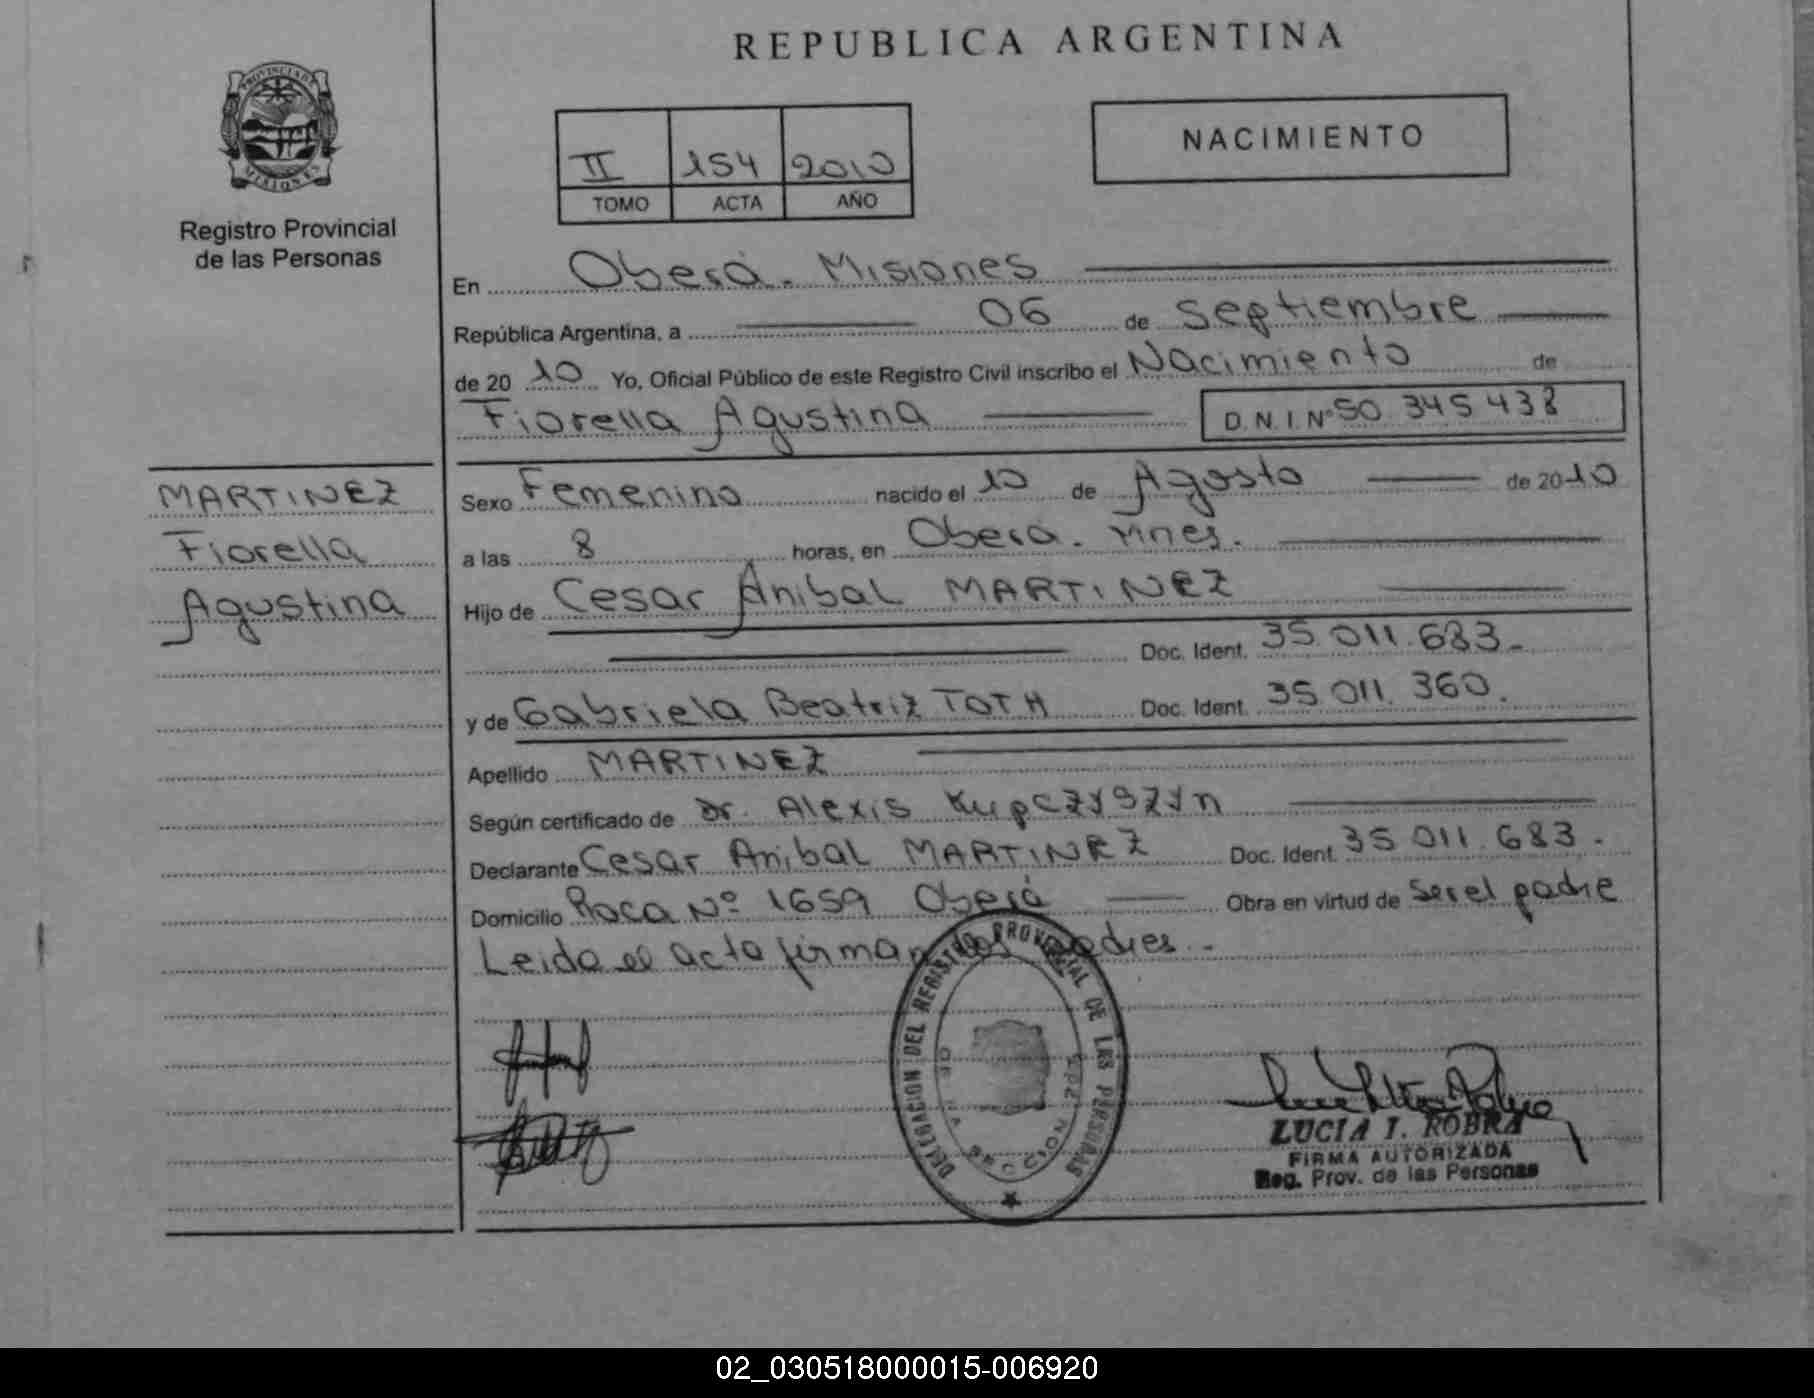 REPUBLICA ARGENTINA
PROVINCIA DE
MISIONES
Registro Provincial
de las Personas
II 154 2010
TOMO ACTA AÑO
NACIMIENTO
En Oberá. Misiones
República Argentina, a 06 de septiembre
de 20 10 Yo, Oficial Público de este Registro Civil inscribo el Nacimiento de
Fiorella Agustina D.N.I.Nº 50.345.438
MARTINEZ
Fiorella
Agustina
Sexo Femenino nacido el 10 de Agosto de 2010
a las 8 horas, en Oberá. Mnes.
Hijo de Cesar Anibal MARTINEZ
Doc. Ident. 35.011.683.-
y de Gabriela Beatriz TOTH Doc. Ident. 35.011.360.
Apellido MARTINEZ
Según certificado de Dr. Alexis Kupczyszyn
Declarante Cesar Anibal MARTINEZ Doc. Ident. 35.011.683.
Domicilio Roca Nº 1659 Oberá Obra en virtud de Ser el padre
Leida el acta firman los padres.-
DELEGACION DEL REGISTRO PROVINCIAL DE LAS PERSONAS
OBERA SECCION
LUCIA I. ROBRA
FIRMA AUTORIZADA
Reg. Prov. de las Personas
02_030518000015-006920